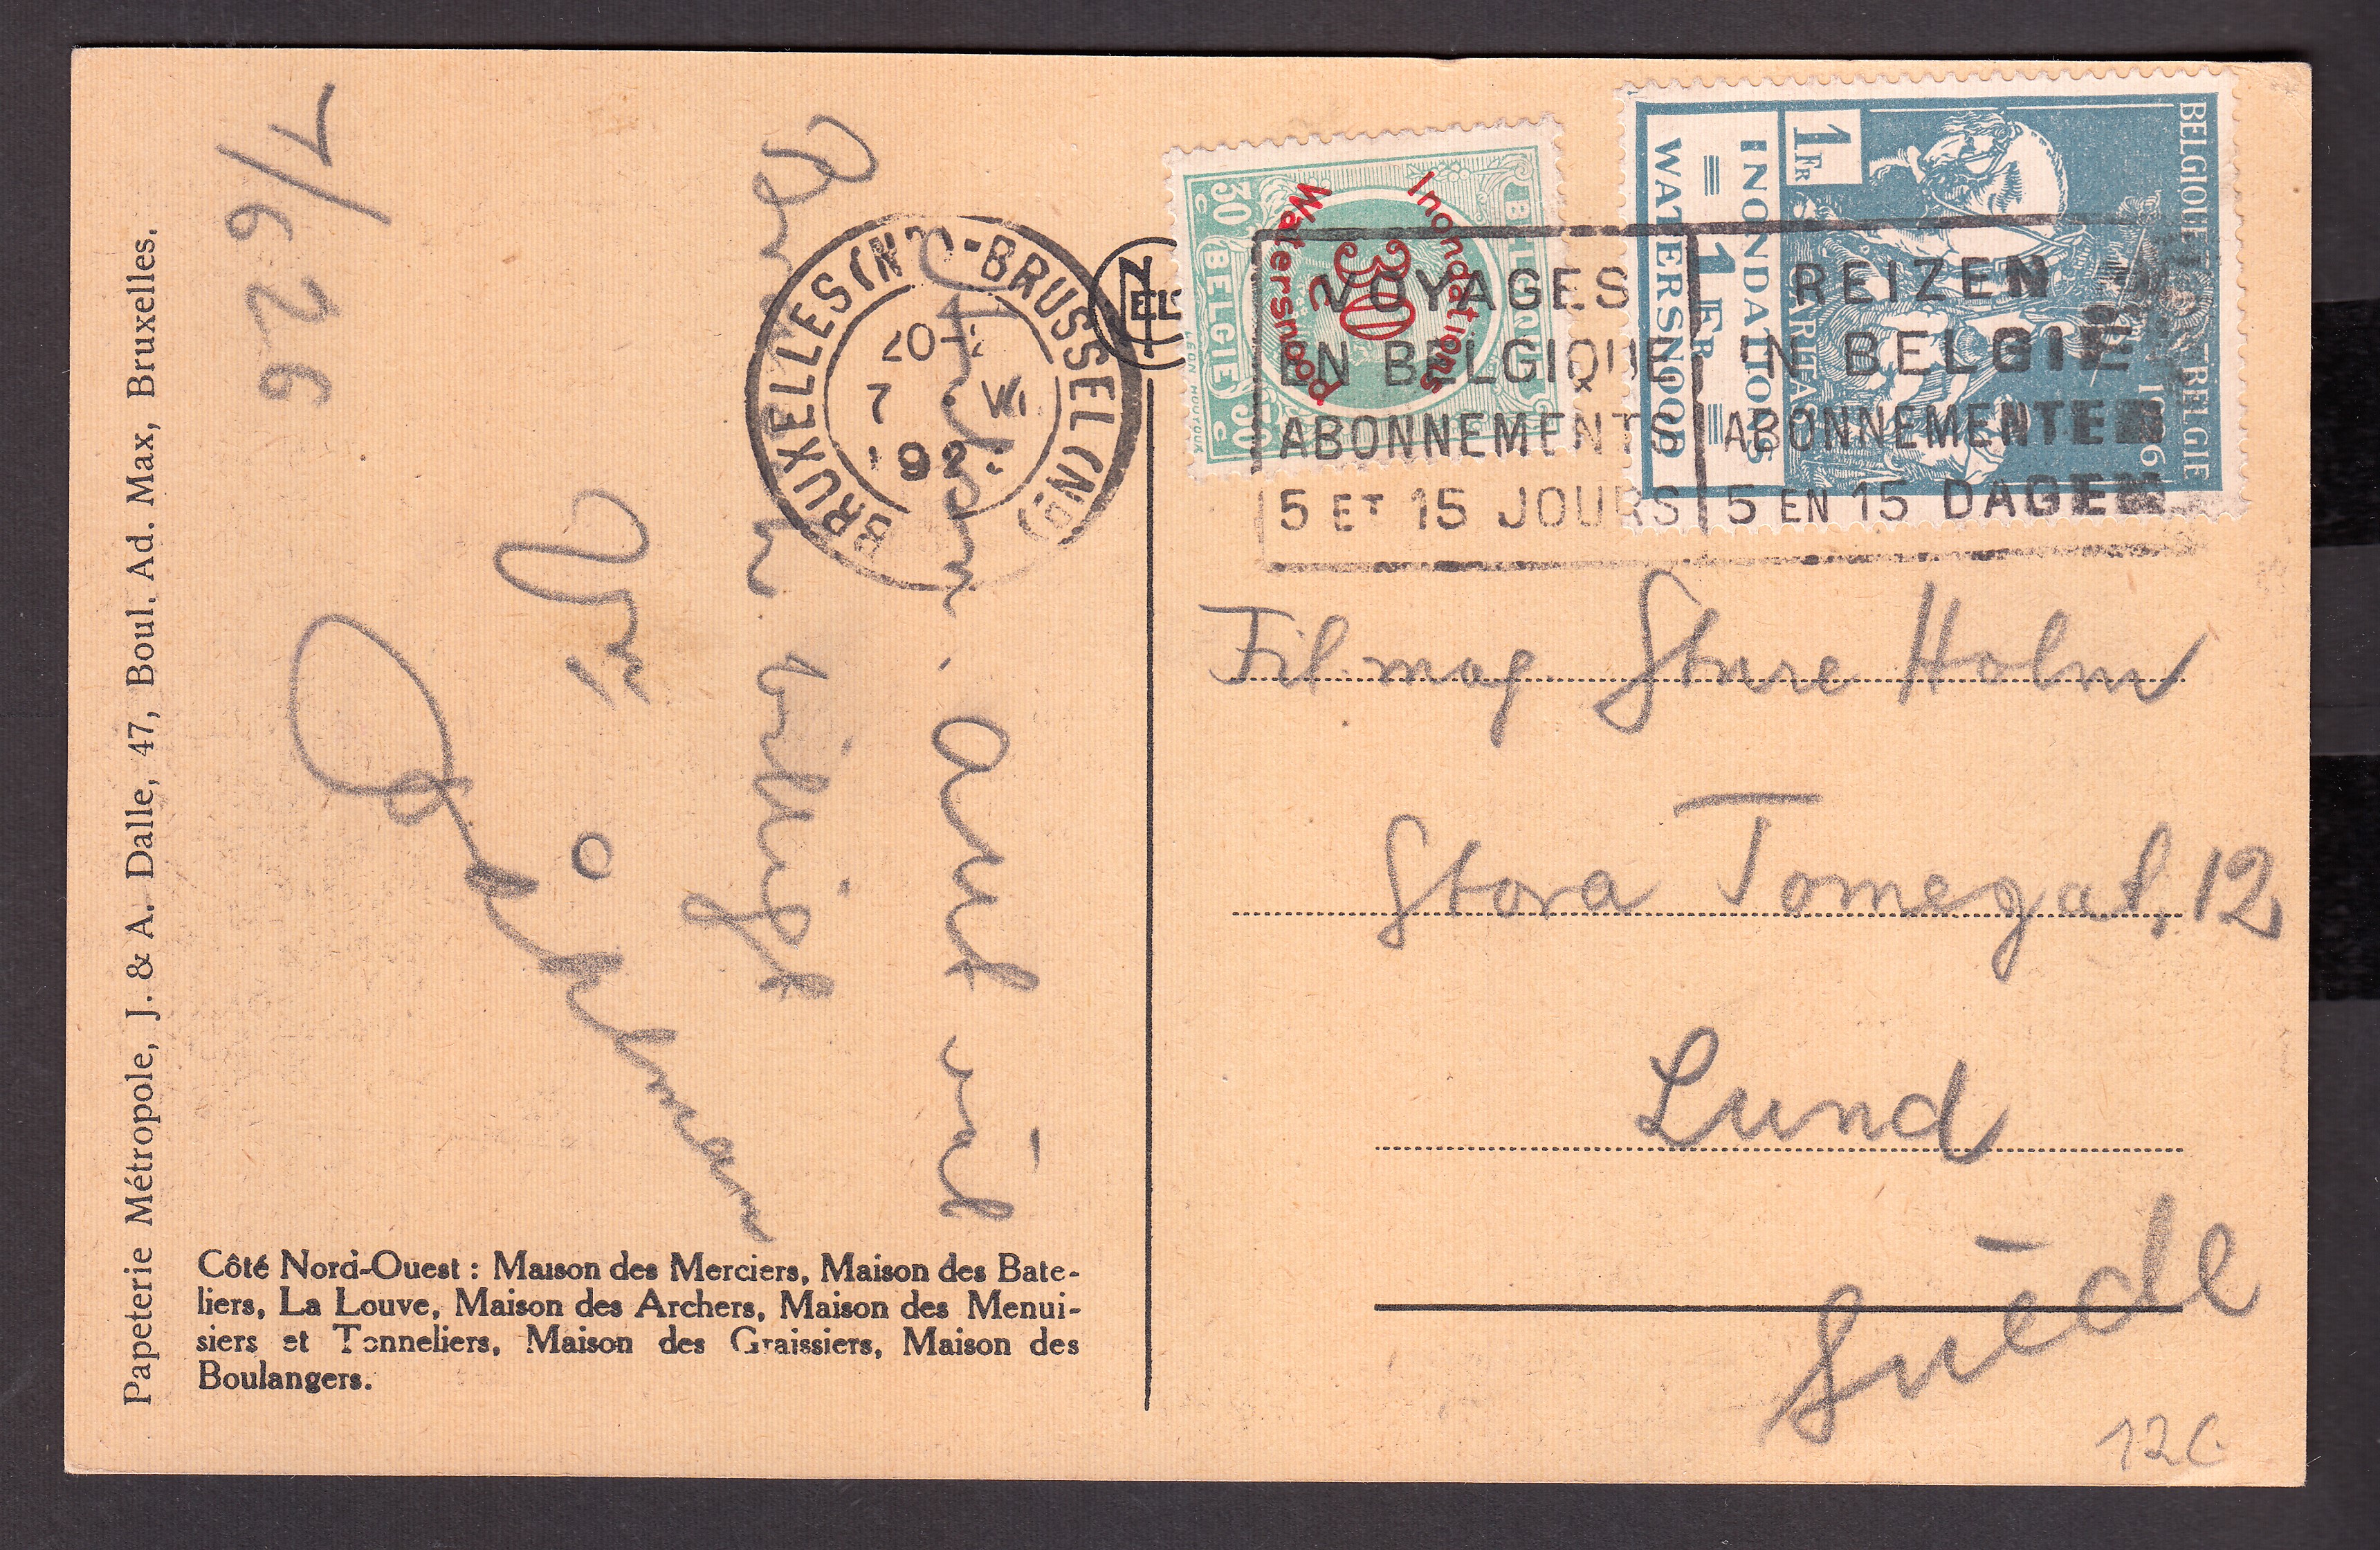 Papeterie Métropole, J. & A. Dalle, 47, Boul. Ad. Max, Bruxelles.
7/6 26
Allt väl
Côté Nord-Ouest : Maison des Merciers, Maison des Bate-
liers, La Louve, Maison des Archers, Maison des Menui-
siers et Tonneliers, Maison des Graissiers, Maison des
Boulangers.
NELS
BRUXELLES (Nd)-BRUSSEL (Nd)
7 VI
BELGIQUE
BELGIE
30 c
30 c
Inondations
30 c
Watersnood
BELGIQUE BELGIË
1926
CARITAS
1 FR
INONDATIONS
WATERSNOOD
= 1 FR =
VOYAGES
EN BELGIQUE
ABONNEMENTS
5 ET 15 JOURS
REIZEN
IN BELGIE
ABONNEMENTEN
5 EN 15 DAGEN
Fil. mag. Sture Holm
Stora Tomegat. 12
Lund
Suède
12 C